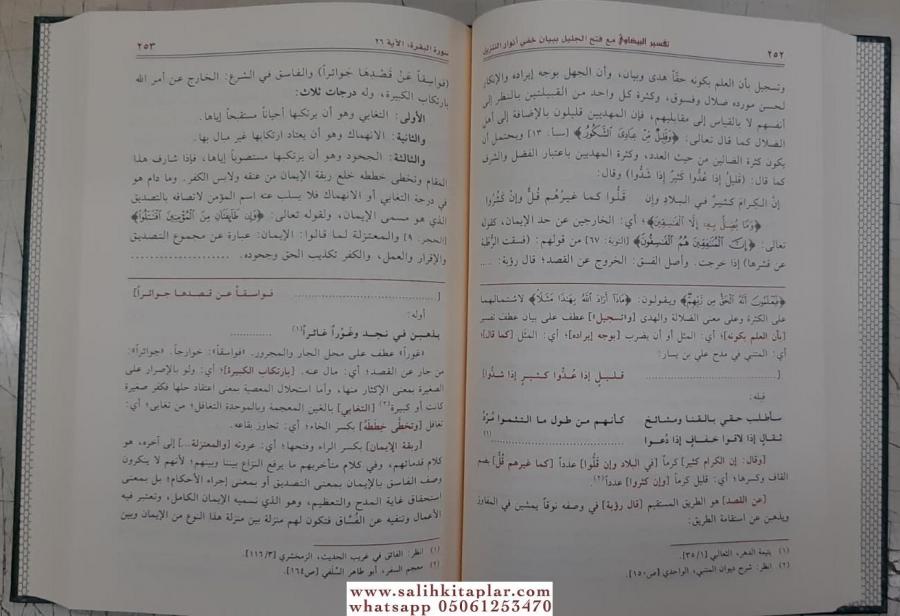 ٢٥٢
تفسير البيضاوي مع فتح الجليل ببيان خفي أنوار التنزيل
وتسجيل بأن العلم بكونه حقاً هدى وبيان، وأن الجهل بوجه إيراده والإنكار
لحسن مورده ضلال وفسوق، وكثرة كل واحد من القبيلتين بالنظر إلى
أنفسهم لا بالقياس إلى مقابليهم، فإن المهديين قليلون بالإضافة إلى أهل
الضلال كما قال تعالى: ﴿وَقَلِيلٌ مِّنْ عِبَادِيَ الشَّكُورُ﴾ [سبأ: ١٣] ويحتمل أن
يكون كثرة الضالين من حيث العدد، وكثرة المهديين باعتبار الفضل والشرف
كما قال: (قليل إذا عُدُّوا كثيرٌ إذا شَدُّوا) وقال:
إنَّ الكرامَ كثيرٌ في البلادِ وإن قَلُّوا كما غيرُهم قُلٌّ وإنْ كَثُرُوا
﴿وَمَا يُضِلُّ بِهِ إِلَّا الْفَاسِقِينَ﴾؛ أي: الخارجين عن حد الإيمان، كقوله
تعالى: ﴿إِنَّ الْمُنَافِقِينَ هُمُ الْفَاسِقُونَ﴾ [التوبة: ٦٧] من قولهم: (فسقت الرُّطَبة
عن قشرها) إذا خرجت. وأصل الفسق: الخروج عن القصد؛ قال رؤبة: .....
﴿فَيَعْلَمُونَ أَنَّهُ الْحَقُّ مِن رَّبِّهِمْ﴾ ويقولون: ﴿مَاذَا أَرَادَ اللَّهُ بِهَذَا مَثَلًا﴾ لاشتمالهما
على الكثرة وعلى معنى الضلالة والهدى [وتسجيل] عطف على بيان عطف تفسير
[بأن العلم بكونه]؛ أي: المثل أو أن يضرب [بوجه إيراده]؛ أي: المثل [كما قال]؛
أي: المتنبي في مدح علي بن يسار:
[.......... قليلٍ إذا عُدُّوا كثيرٍ إذا شَدُّوا]
قبله:
سأطلب حقي بالقنا ومشائخ كأنهم من طول ما التثموا مُرْدُ
ثقالٍ إذا لاقوا خفافٍ إذا دُعوا ..........(١)
[وقال: إن الكرام كثير] كرماً [في البلاد وإن قَلُّوا] عدداً [كما غيرهم قُلٌّ] بضم
القاف وكسرها؛ أي: قليل كرماً [وإن كثروا] عدداً(٢).
[عن القصد] هو الطريق المستقيم [قال رؤبة] في وصفه نوقاً يمشين في المفاوز
ويذهبن عن استقامة الطريق:
(١) يتيمة الدهر، الثعالبي [٣٥/١].
(٢) انظر: شرح ديوان المتنبي، الواحدي [ص١٥٠].
سورة البقرة، الآية ٢٦
٢٥٣
(فواسقاً عَنْ قَصْدِها جَوائراً) والفاسق في الشرع: الخارج عن أمر الله
بارتكاب الكبيرة، وله درجات ثلاث:
الأولى: التغابي وهو أن يرتكبها أحياناً مستقبحاً إياها.
والثانية: الانهماك وهو أن يعتاد ارتكابها غير مال بها.
والثالثة: الجحود وهو أن يرتكبها مستصوباً إياها، فإذا شارف هذا
المقام وتخطى خططه خلع ربقة الإيمان من عنقه ولابس الكفر. وما دام هو
في درجة التغابي أو الانهماك فلا يسلب عنه اسم المؤمن لاتصافه بالتصديق
الذي هو مسمى الإيمان، ولقوله تعالى: ﴿وَإِن طَائِفَتَانِ مِنَ الْمُؤْمِنِينَ اقْتَتَلُوا﴾
[الحجر: ٩] والمعتزلة لما قالوا: الإيمان: عبارة عن مجموع التصديق
والإقرار والعمل، والكفر تكذيب الحق وجحوده. ..........
[.......... فواسقاً عن قصدها جوائراً]
أوله:
يذهبن في نجد وغَوْراً غائراً(١) ..........
«غوراً» عطف على محل الجار والمجرور. «فواسقاً»: خوارجاً. «جوائر»:
من جار عن القصد؛ أي: مال عنه. [بارتكاب الكبيرة]؛ أي: ولو بالإصرار على
الصغيرة بمعنى الإكثار منها، وأما استحلال المعصية بمعنى اعتقاد حلها فكفر صغيرة
كانت أو كبيرة(٢) [التغابي] بالغين المعجمة وبالموحدة التغافل؛ من تغابى؛ أي:
تغافل [وتخطَّى خِطَطَهُ] بكسر الخاء؛ أي: تجاوز بقاعه.
[ربقة الإيمان] بكسر الراء وفتحها؛ أي: عروته [والمعتزلة...] إلى آخره، هو
كلام قدمائهم، وفي كلام متأخريهم ما يرفع النزاع بيننا وبينهم؛ لأنهم لا ينكرون
وصف الفاسق بالإيمان بمعنى التصديق أو بمعنى إجراء الأحكام؛ بل بمعنى
استحقاق غاية المدح والتعظيم، وهو الذي نسميه الإيمان الكامل، وتعتبر فيه
الأعمال وتنفيه عن الفُسَّاق فتكون لهم منزلة بين منزلة هذا النوع من الإيمان وبين
(١) انظر: الفائق في غريب الحديث، الزمخشري [١١٦/٣].
(٢) معجم السفر، أبو طاهر السِّلَفي [ص١٦٤].
www.salihkitaplar.com
whatsapp 05061253470